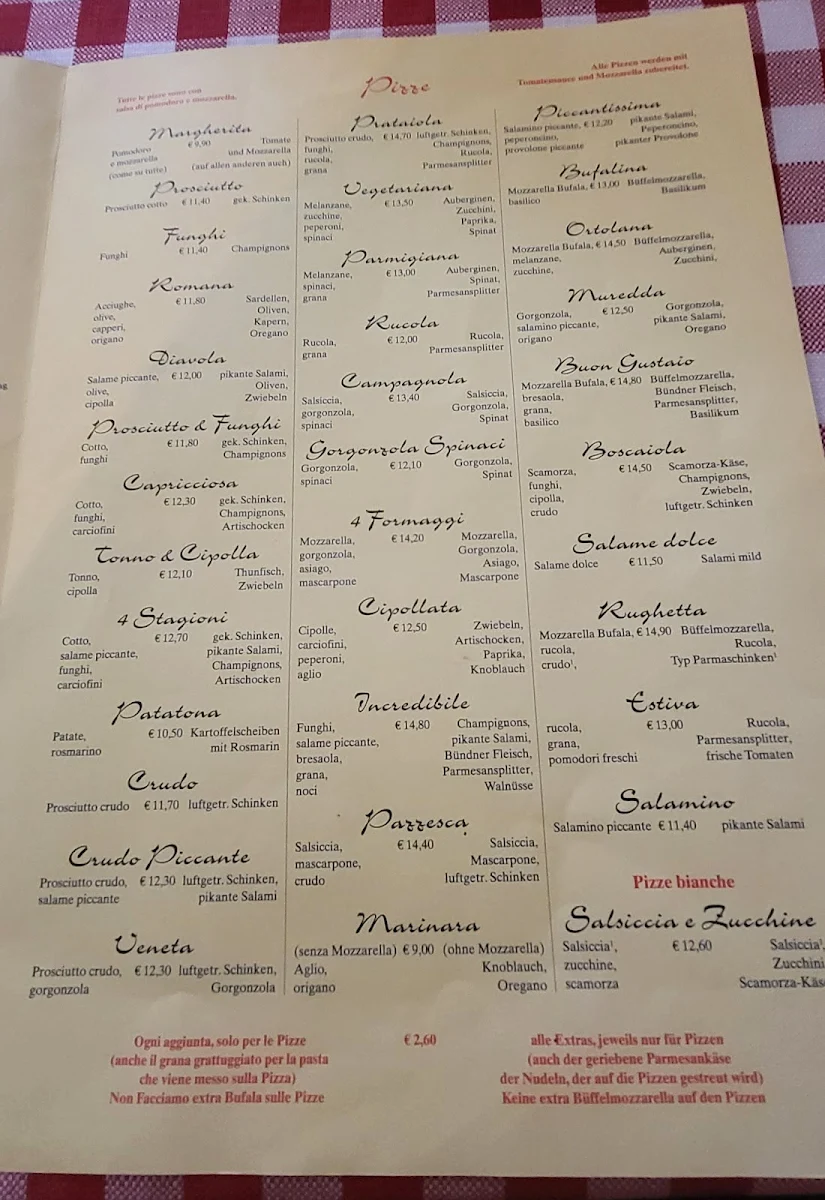 Tutte le pizze sono con
salsa di pomodoro e mozzarella.
Pizze
Alle Pizzen werden mit
Tomatensauce und Mozzarella zubereitet.
Margherita
Pomodoro € 9,90 Tomate
e mozzarella und Mozzarella
(come su tutte) (auf allen anderen auch)
Prosciutto
Prosciutto cotto € 11,40 gek. Schinken
Funghi
Funghi € 11,40 Champignons
Romana
Acciughe, € 11,80 Sardellen,
olive, Oliven,
capperi, Kapern,
origano Oregano
Diavola
Salame piccante, € 12,00 pikante Salami,
olive, Oliven,
cipolla Zwiebeln
Prosciutto & Funghi
Cotto, € 11,80 gek. Schinken,
funghi Champignons
Capricciosa
Cotto, € 12,30 gek. Schinken,
funghi, Champignons,
carciofini Artischocken
Tonno & Cipolla
Tonno, € 12,10 Thunfisch,
cipolla Zwiebeln
4 Stagioni
Cotto, € 12,70 gek. Schinken,
salame piccante, pikante Salami,
funghi, Champignons,
carciofini Artischocken
Patatona
Patate, € 10,50 Kartoffelscheiben
rosmarino mit Rosmarin
Crudo
Prosciutto crudo € 11,70 luftgetr. Schinken
Crudo Piccante
Prosciutto crudo, € 12,30 luftgetr. Schinken,
salame piccante pikante Salami
Veneta
Prosciutto crudo, € 12,30 luftgetr. Schinken,
gorgonzola Gorgonzola
Prataiola
Prosciutto crudo, € 14,70 luftgetr. Schinken,
funghi, Champignons,
rucola, Rucola,
grana Parmesansplitter
Vegetariana
Melanzane, € 13,50 Auberginen,
zucchine, Zucchini,
peperoni, Paprika,
spinaci Spinat
Parmigiana
Melanzane, € 13,00 Auberginen,
spinaci, Spinat,
grana Parmesansplitter
Rucola
Rucola, € 12,00 Rucola,
grana Parmesansplitter
Campagnola
Salsiccia, € 13,40 Salsiccia,
gorgonzola, Gorgonzola,
spinaci Spinat
Gorgonzola Spinaci
Gorgonzola, € 12,10 Gorgonzola,
spinaci Spinat
4 Formaggi
Mozzarella, € 14,20 Mozzarella,
gorgonzola, Gorgonzola,
asiago, Asiago,
mascarpone Mascarpone
Cipollata
Cipolle, € 12,50 Zwiebeln,
carciofini, Artischocken,
peperoni, Paprika,
aglio Knoblauch
Incredibile
Funghi, € 14,80 Champignons,
salame piccante, pikante Salami,
bresaola, Bündner Fleisch,
grana, Parmesansplitter,
noci Walnüsse
Pazzesca
Salsiccia, € 14,40 Salsiccia,
mascarpone, Mascarpone,
crudo luftgetr. Schinken
Marinara
(senza Mozzarella) € 9,00 (ohne Mozzarella)
Aglio, Knoblauch,
origano Oregano
Piccantissima
Salamino piccante, € 12,20 pikante Salami,
peperoncino, Peperoncino,
provolone piccante pikanter Provolone
Bufalina
Mozzarella Bufala, € 13,00 Büffelmozzarella,
basilico Basilikum
Ortolana
Mozzarella Bufala, € 14,50 Büffelmozzarella,
melanzane, Auberginen,
zucchine, Zucchini,
Muredda
Gorgonzola, € 12,50 Gorgonzola,
salamino piccante, pikante Salami,
origano Oregano
Buon Gustaio
Mozzarella Bufala, € 14,80 Büffelmozzarella,
bresaola, Bündner Fleisch,
grana, Parmesansplitter,
basilico Basilikum
Boscaiola
Scamorza, € 14,50 Scamorza-Käse,
funghi, Champignons,
cipolla, Zwiebeln,
crudo luftgetr. Schinken
Salame dolce
Salame dolce € 11,50 Salami mild
Rughetta
Mozzarella Bufala, € 14,90 Büffelmozzarella,
rucola, Rucola,
crudo¹, Typ Parmaschinken¹
Estiva
rucola, € 13,00 Rucola,
grana, Parmesansplitter,
pomodori freschi frische Tomaten
Salamino
Salamino piccante € 11,40 pikante Salami
Pizze bianche
Salsiccia e Zucchine
Salsiccia¹, € 12,60 Salsiccia¹,
zucchine, Zucchini
scamorza Scamorza-Käs
Ogni aggiunta, solo per le Pizze € 2,60
(anche il grana grattuggiato per la pasta
che viene messo sulla Pizza)
Non Facciamo extra Bufala sulle Pizze
alle Extras, jeweils nur für Pizzen
(auch der geriebene Parmesankäse
der Nudeln, der auf die Pizzen gestreut wird)
Keine extra Büffelmozzarella auf den Pizzen